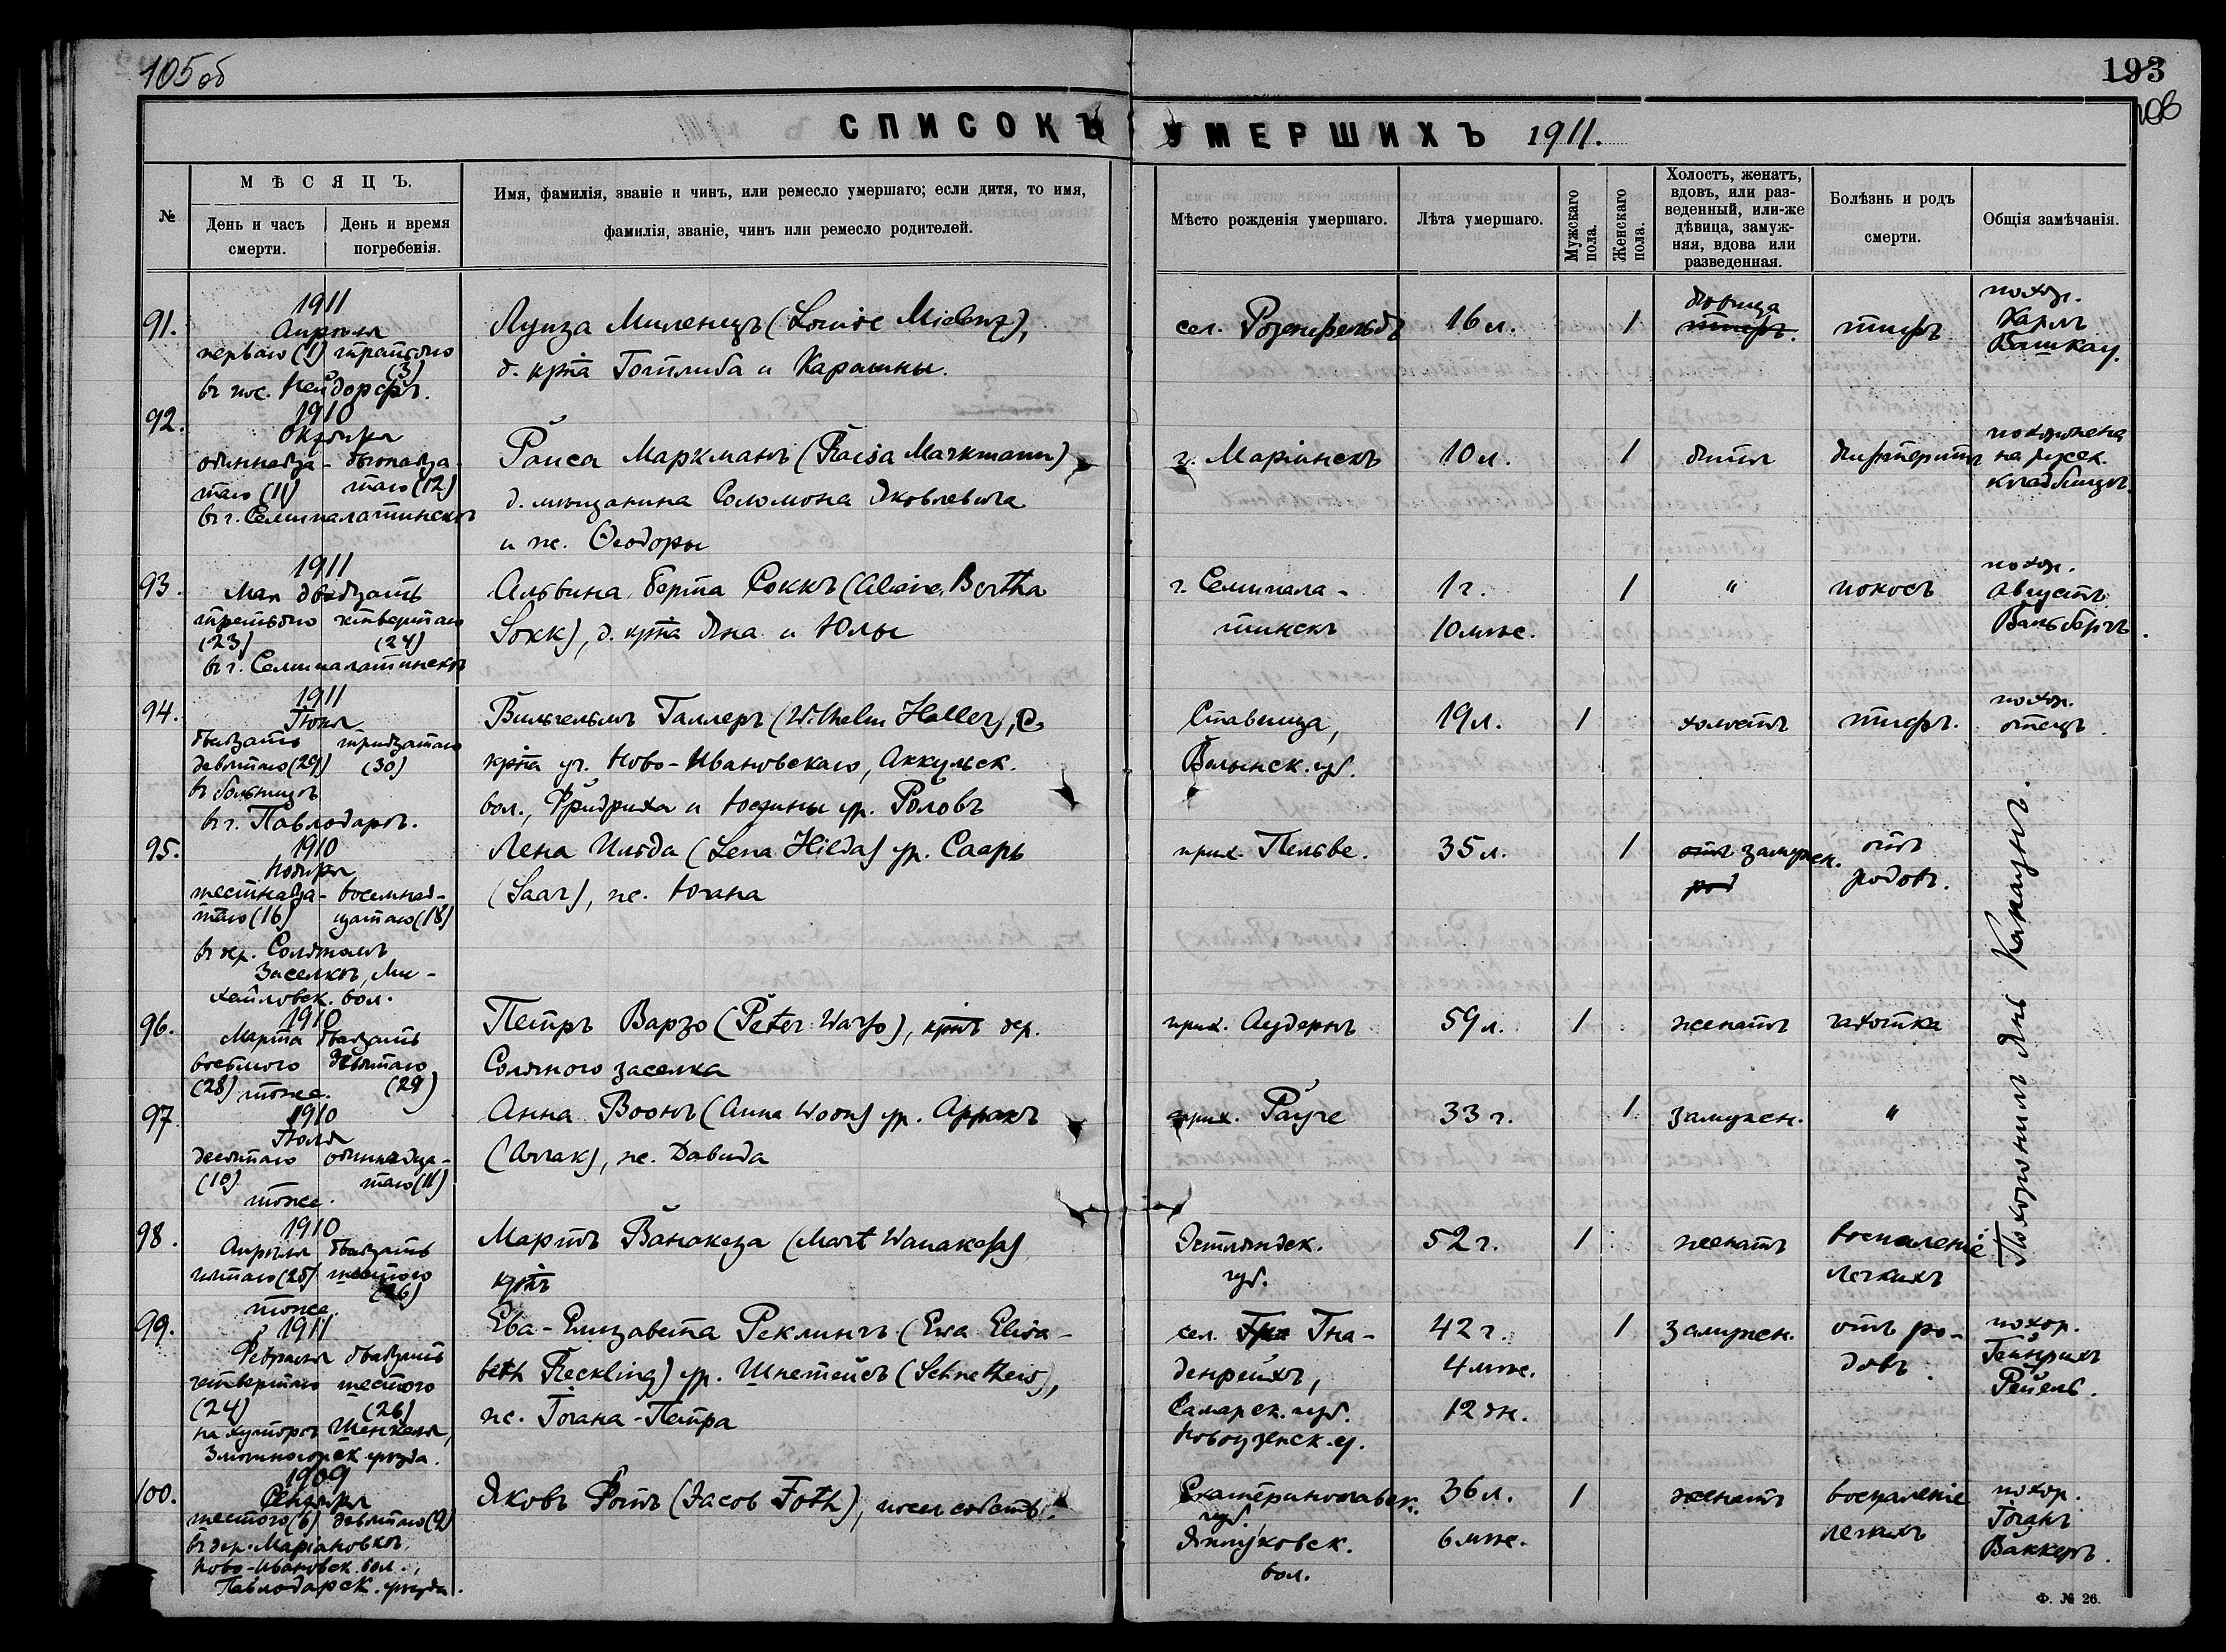 105об
193
106
СПИСОКЪ УМЕРШИХЪ 1911.
№
МѢСЯЦЪ.
День и часъ смерти.
День и время погребенія.
Имя, фамилія, званіе и чинъ, или ремесло умершаго; если дитя, то имя,
фамилія, званіе, чинъ или ремесло родителей.
Мѣсто рожденія умершаго.
Лѣта умершаго.
Мужскаго пола.
Женскаго пола.
Холостъ, женатъ,
вдовъ, или раз-
веденный, или-же
дѣвица, замуж-
няя, вдова или
разведенная.
Болѣзнь и родъ
смерти.
Общія замѣчанія.
91.
1911
Апрѣля
перваго (1) третьяго
(3)
въ пос. Нейдорфъ.
Луиза Миленцъ (Louise Mielenz),
д. крнa Готлиба и Каролины.
сел. Розенфельдъ
16 л.
1
дѣвица
тифъ.
тифъ
похор.
Карлъ
Вашкау.
92.
1910
Октября
одиннадца- двѣнадца-
таго (11) таго (12)
въ г. Семипалатинскѣ
Раиса Маркманъ (Raisa Markmann)
д. мѣщанина Соломона Яковлевича
и ж. Ѳеодоры
г. Маріинскъ
10 л.
1
дитя
дифтеритъ
похоронена
на русск.
кладбищѣ.
93.
1911
Мая двадцать
третьяго четвертаго
(23) (24)
въ г. Семипалатинскѣ
Альвина Берта Соккъ (Alwine Bertha
Sokk), д. крнa Яна и Юлы
г. Семипала-
тинскъ
1 г.
10 мѣс.
1
"
поносъ
похор.
Августъ
Вальбергъ.
94.
1911
Іюня
двадцать тридцатаго
девятаго (29) (30)
въ больницѣ
въ г. Павлодарѣ.
Вильгельмъ Галлеръ (Wilhelm Haller), с.
крнa уч. Ново-Ивановскаго, Аккульск.
вол., Фридриха и Юстины ур. Роловъ
Ставища,
Волынск. губ.
19 л.
1
холостъ
тифъ.
похор.
отецъ.
95.
1910
Ноября
шестнадца- восемнад-
таго (16) цатаго (18)
въ дер. Соляномъ
Заселкѣ, Ми-
хайловск. вол.
Лена Ильда (Lena Hilda) ур. Сааръ
(Saar), ж. Югана
прих. Пельве.
35 л.
1
отъ замужн.
род
отъ
родовъ.
Похоронилъ Янъ Кападзъ.
96.
1910
Марта двадцать
восьмого девятаго
(28) (29)
тоже.
Петръ Варзо (Peter Warso), крнъ дер.
Солянаго заселка
прих. Аудернъ
59 л.
1
женатъ
чахотка
97.
1910
Іюля
десятаго одиннадца-
(10) таго (11)
тоже.
Анна Воонъ (Anna Woon) ур. Арракъ
(Arrak), ж. Давида
прих. Рауге
33 г.
1
замужн.
"
98.
1910
Апрѣля двадцать
пятаго (25) шестого
(26)
тоже.
Мартъ Ванакеза (Mart Wanakesa)
крнъ
Эстляндск.
губ.
52 г.
1
женатъ
воспаленіе
легкихъ
99.
1911
Февраля двадцать
четвертаго шестого
(24) (26)
на хуторѣ Шенкеля,
Змѣиногорск. уѣзда.
Ева-Елизавета Реклингъ (Ewa Elisa-
beth Reckling) ур. Шнетейсъ (Schnetheis),
ж. Іогана-Петра
сел. Гна-
денрейхъ,
Самарск. губ.
Новоузенск. у.
42 г.
4 мѣс.
12 дн.
1
замужн.
отъ ро-
довъ.
похор.
Гейнрихъ
Рейель.
100.
1909
Сентября
шестого (6) девятаго (9)
въ дер. Маріановкѣ,
Ново-Ивановск. вол.,
Павлодарск. уѣзда.
Яковъ Фотъ (Jacob Foth), посел. собств.
Екатеринославск.
губ.,
вол.
36 л.
6 мѣс.
1
женатъ
воспаленіе
легкихъ
похор.
Іоганъ
Ваккеръ.
Ф. № 26.